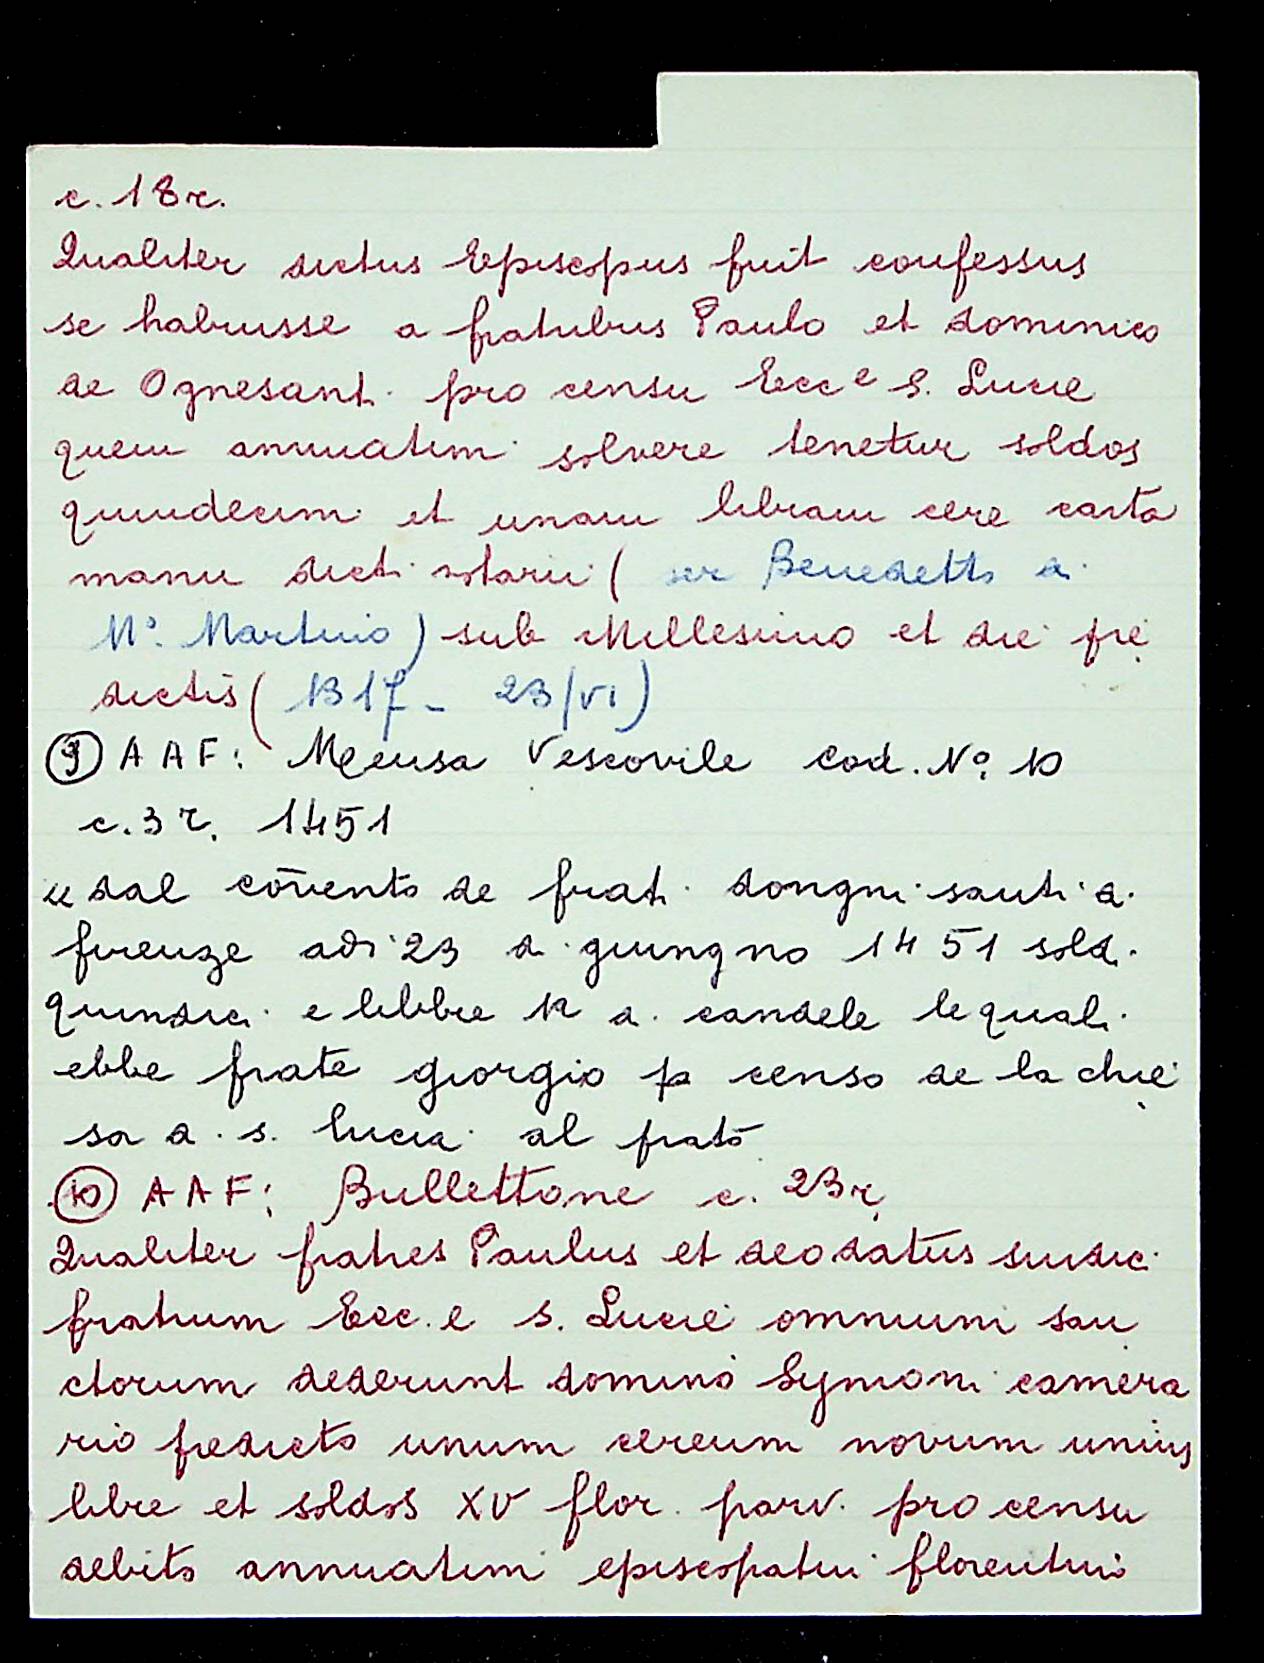 c. 18 r.
Qualiter dictus Episcopus fuit confessus
se habuisse a fratribus Paulo et dominico
de Ognesanti pro censu Ecc.e S. Lucie
quem annuatim solvere tenetur soldos
quindecim et unam libram cere carta
manu dicti notarii ( ser Benedetto di
M° Martino) sub Millesimo et die pre
dictis ( 1317 - 23/VI)
⑨ A A F: Mensa Vescovile cod. N°.
c. 3 r. 1451
" dal cōvento de frati dongni santi di
firenze adi 23 di giungno 1451 soldi
quindici e libbre di candele le quali
ebbe frate giorgio p censo de la chie
sa di s. lucia al prato
⑩ A A F: Bullettone c. 23 r.
Qualiter fratres Paulus et deodatus sindici
fratrum Ecc.e S. Lucie omnium san
ctorum dederunt domino Symoni camera
rio predicto unum cereum novum unius
libre et soldos XV flor. parv. pro censu
debito annuatim episcopatui florentino